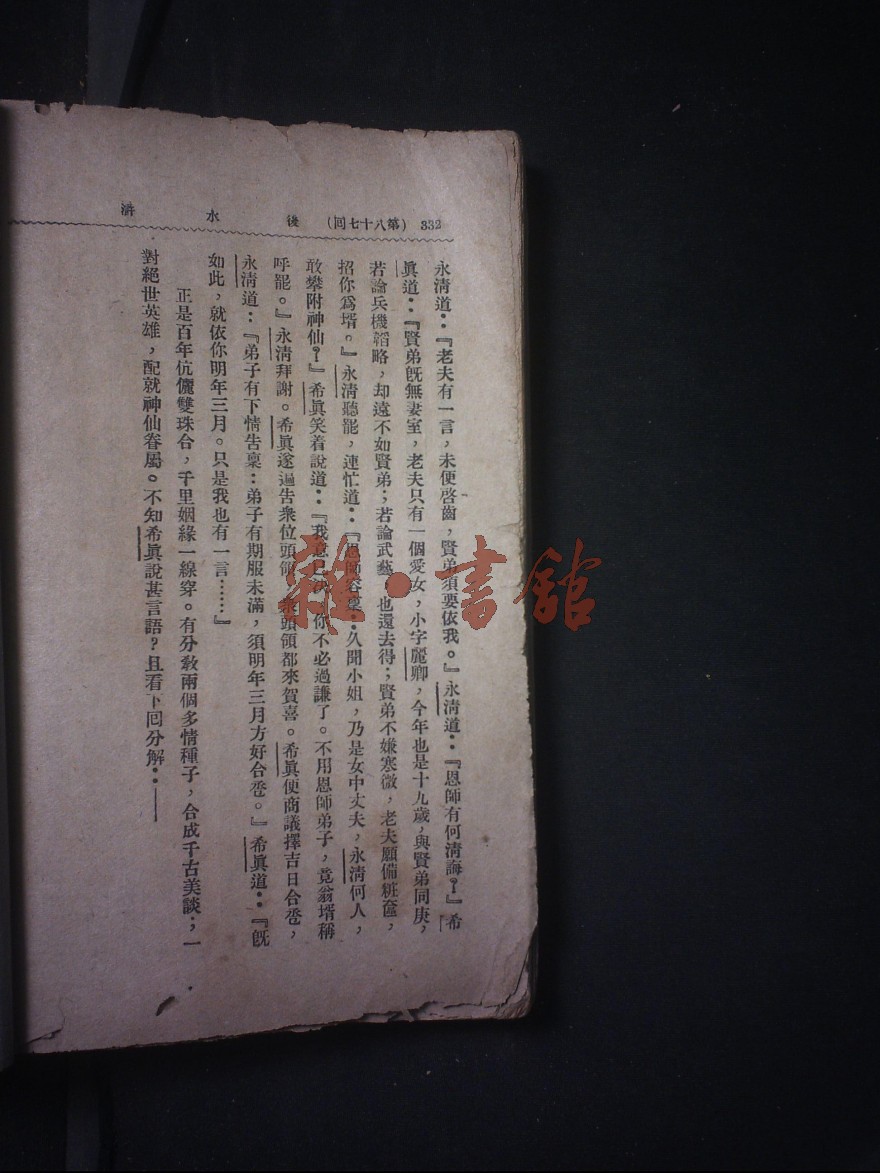 332 (第八十七回) 後水滸
永清道：『老夫有一言，未便啓齒，賢弟須要依我。』永清道：『恩師有何清誨？』希
眞道：『賢弟旣無妻室，老夫只有一個愛女，小字麗卿，今年也是十九歲，與賢弟同庚，
若論兵機韜略，却遠不如賢弟；若論武藝，也還去得；賢弟不嫌寒微，老夫願備粧奩，
招你爲壻。』永清聽罷，連忙道：『恩師容稟：久聞小姐，乃是女中丈夫，永清何人，
敢攀附神仙？』希眞笑着說道：『我意已决，你不必過謙了。不用恩師弟子，竟翁壻稱
呼罷。』永清拜謝。希眞遂遍告衆位頭領，衆頭領都來賀喜。希眞便商議擇吉日合巹，
永清道：『弟子有下情告稟：弟子有期服未滿，須明年三月方好合巹。』希眞道：『旣
如此，就依你明年三月。只是我也有一言……』
正是百年伉儷雙珠合，千里姻緣一線穿。有分敎兩個多情種子，合成千古美談；一
對絕世英雄，配就神仙眷屬。不知希眞說甚言語？且看下回分解：——
雜·書館